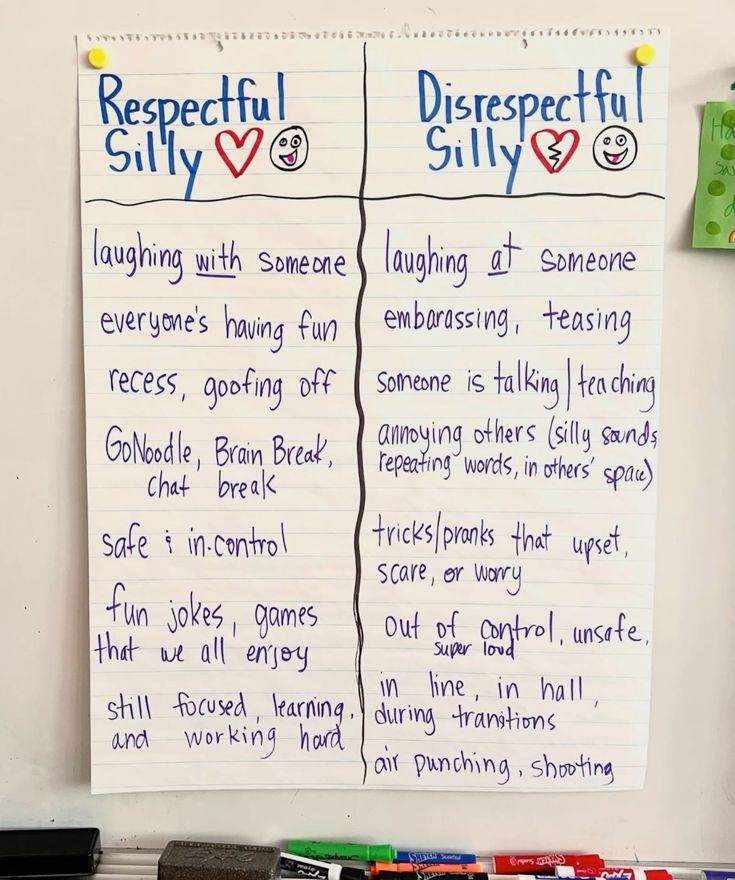 Respectful
Silly
laughing with someone
everyone's having fun
recess, goofing off
GoNoodle, Brain Break,
chat break
safe & in-control
fun jokes, games
that we all enjoy
still focused, learning,
and working hard
Disrespectful
Silly
laughing at someone
embarassing, teasing
someone is talking/teaching
annoying others (silly sounds,
repeating words, in others' space)
tricks/pranks that upset,
scare, or worry
out of control, unsafe,
super loud
in line, in hall,
during transitions
air punching, shooting